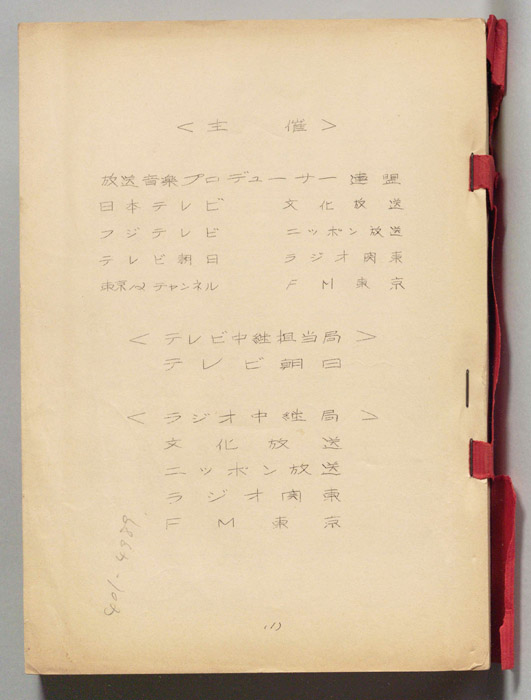 ＜主　催＞
放送音楽プロデューサー連盟
日本テレビ　文化放送
フジテレビ　ニッポン放送
テレビ朝日　ラジオ関東
東京12チャンネル　FM東京
＜テレビ中継担当局＞
テレビ朝日
＜ラジオ中継局＞
文化放送
ニッポン放送
ラジオ関東
FM東京
401-4989
(1)